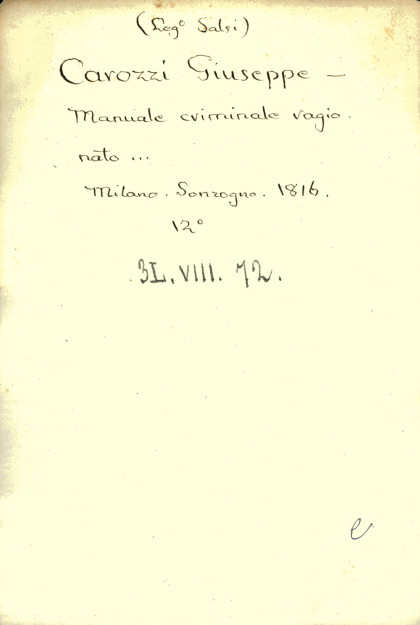 (Leg.º Salsi)
Carozzi Giuseppe —
Manuale criminale ragio.
nato ...
Milano. Sonzogno. 1816.
12º
3L. VIII. 72.
e